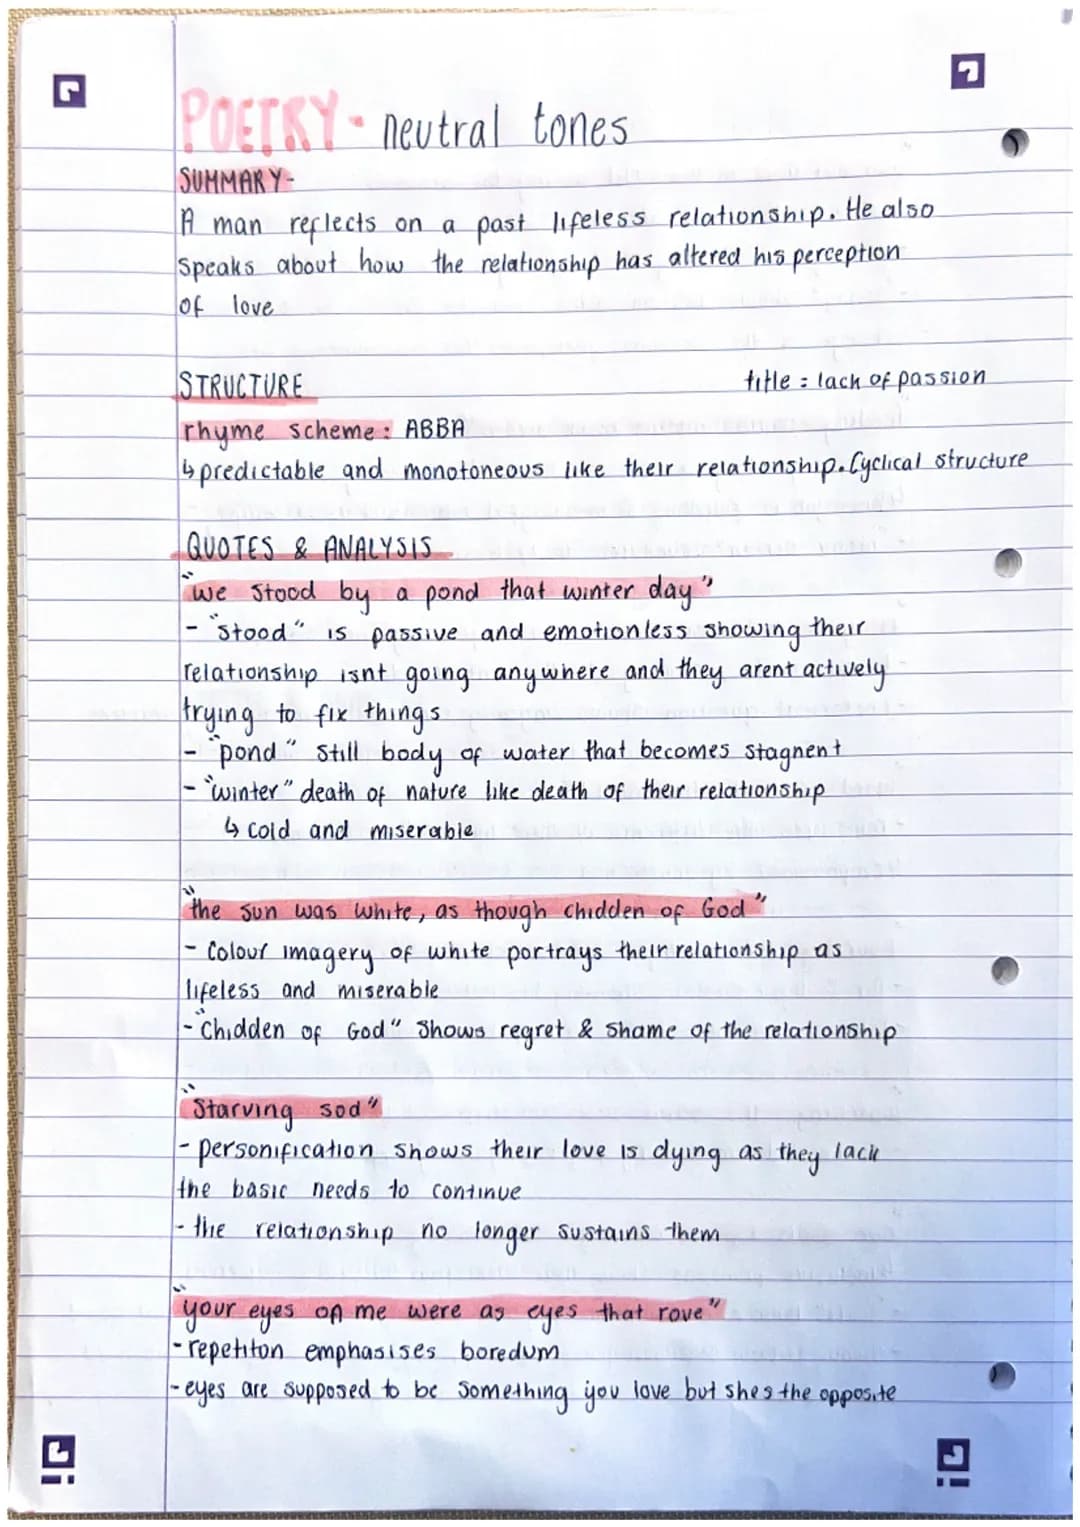 POETRY - neutral tones
SUMMARY-
A man reflects on a past lifeless relationship. He also
speaks about how the relationship has altered his perception
of love
STRUCTURE title = lack of passion
rhyme scheme: ABBA
↳ predictable and monotoneous like their relationship. Cyclical structure
QUOTES & ANALYSIS
"we stood by a pond that winter day"
- "stood" is passive and emotionless showing their
relationship isnt going anywhere and they arent actively
trying to fix things
- "pond" still body of water that becomes stagnent
- "winter" death of nature like death of their relationship
↳ cold and miserable
"the sun was white, as though chidden of God"
- Colour imagery of white portrays their relationship as
lifeless and miserable
- "Chidden of God" shows regret & shame of the relationship
"Starving sod"
- personification shows their love is dying as they lack
the basic needs to continue
- the relationship no longer sustains them
"your eyes on me were as eyes that rove"
- repetiton emphasises boredum
- eyes are supposed to be something you love but shes the opposite